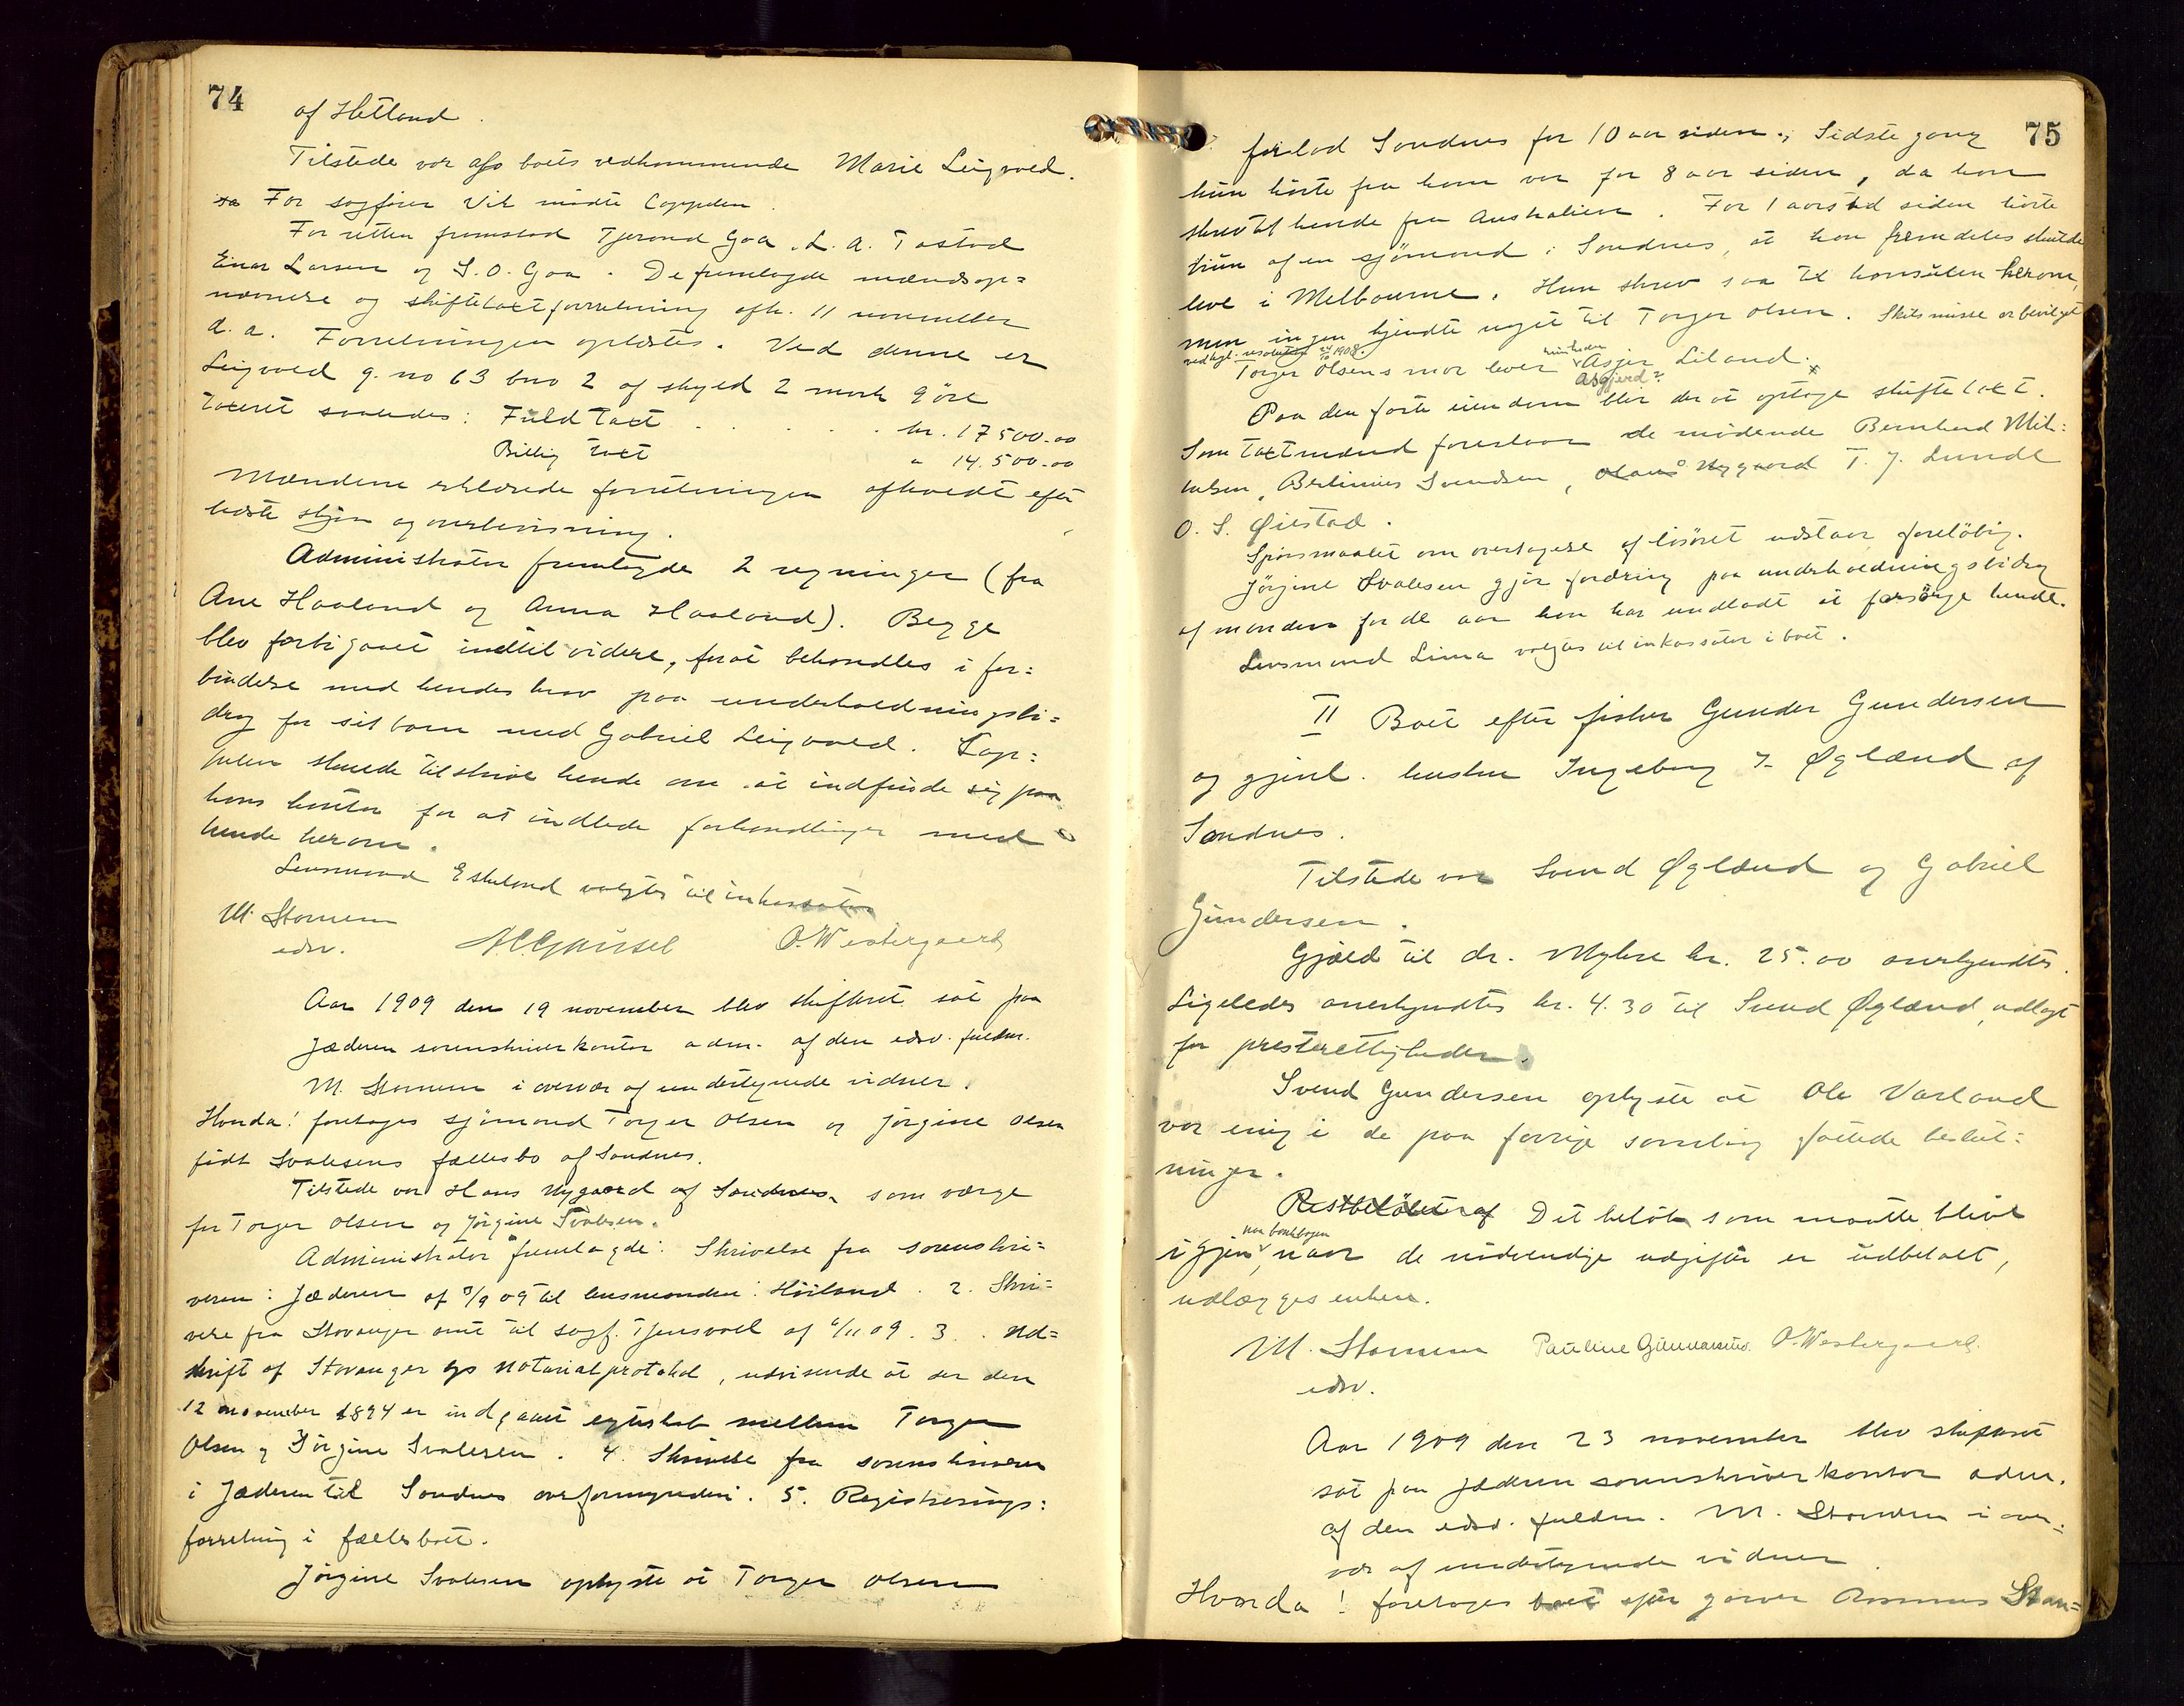 74
af Hetland.
Tilstede var afs boets vedkommende Marie Leigvold.
For sagfører Vik mødte Cappelen.
For retten fremstod Tjerand Goa, L. A. Tastad
Einar Larsen og S. O. Goa. De fremlagde mændsop=
nævnelse og skiftetaxtforretning afh. 11 november
d. a. Forretningen oplæstes. Ved denne er
Leigvold g. no 63 bno 2 af skyld 2 mark 9 øre
taxeret saaledes: Fuld taxt . . . . . kr. 17500.00
Billig taxt " 14.500.00
Mændene erklærede forretningen afholdt efter
bedste skjøn og overbevisning.
Administrator fremlagde 2 regninger (fra
Ane Haaland og Anna Haaland). Begge
blev forbigaaet indtil videre, forat behandles i for=
bindelse med hendes krav paa underholdningsbi=
drag for sit barn med Gabriel Leigvold. Cap=
pelen skulde tilskrive hende om at indfinde sig paa
hans kontor for at indlede forhandlinger med
hende herom.
Lensmand Eskeland valgtes til inkassator
M. Stamnen
edsv.
A. C. Gausel O. Westergaard
Aar 1909 den 19 november blev skifteret sat paa
Jæderen sorenskriverkontor adm. af den edsv. fuldm.
M. Stamnen i overvær af undertegnede vidner.
Hvorda! foretoges sjømand Torger Olsen og Jørgine Olsen
født Svalesens fællesbo af Sandnes.
Tilstede var Hans Nygaard af Sandnes som værge
for Torger Olsen og Jørgine Svalesen.
Administrator fremlagde: Skrivelse fra sorenskri=
veren i Jæderen af 3/9 09 til lensmanden i Høiland. 2. Skri=
velse fra Stavanger amt til sagf. Tjensvoll af 6/11 09. 3. Ud=
skrift af Stavanger bys notarialprotokol, udvisende at der den
12 november 1894 er indgaaet egteskab mellem Torger
Olsen og Jørgine Svalesen. 4. Skrivelse fra sorenskriveren
i Jæderen til Sandnes overformynderi. 5. Registrerings=
forretning i fællesboet.
Jørgine Svalesen oplyste at Torger Olsen
75
forlod Sandnes for 10 aar siden. Sidste gang
hun hørte fra ham var for 8 aar siden, da han
skrev til hende fra Australien. For 1 aarstid siden hørte
hun af en sjømand i Sandnes, at han fremdeles skulde
leve i Melbourne. Hun skrev saa til konsulen herom,
men ingen kjendte noget til Torger Olsen. Skilsmisse er bevilget
ved kgl. resolution 24/10 1908.
Torger Olsens mor lever hun heder Asjer Liland.
Asgjerd?
Paa den faste eiendom blir der at optage skiftetaxt.
Som taxtmænd foreslaar de mødende Bernhard Mik=
kelsen, Berlinius Svendsen, Olaus Nygaard T. J. Lunde
O. S. Øiestad.
Spørsmaalet om overtagelse af løsøret udstaar foreløbig.
Jørgine Svalesen gjør fordring paa underholdningsbidrag
af manden for de aar han har undladt at forsørge hende.
Lensmand Lima valgtes til inkassator i boet.
II Boet efter fisker Gunder Gundersen
og gjenl. hustru Ingeborg f. Øglænd af
Sandnes.
Tilstede var Svend Øglænd og Gabriel
Gundersen.
Gjæld til dr. Myhre kr. 25.00 anerkjendtes.
Ligeledes anerkjendtes kr. 4.30 til Svend Øglænd, udlagt
for presterettigheder.
Svend Gundersen oplyste at Ole Varland
var enig i de paa forrige samling fattede beslut=
ninger.
Restbeløbet af Det beløb som maatte blive
igjen, naar de nødvendige udgifter er udbetalt,
udlægges enken.
M. Stamnen Pauline Gunnarsen O. Westergaard.
edsv.
Aar 1909 den 23 november blev skifteret
sat paa Jæderen sorenskriverkontor adm.
af den edsv. fuldm. M. Stamnen i over=
vær af undertegnede vidner.
Hvorda! foretoges boet efter garver Rasmus Stan=